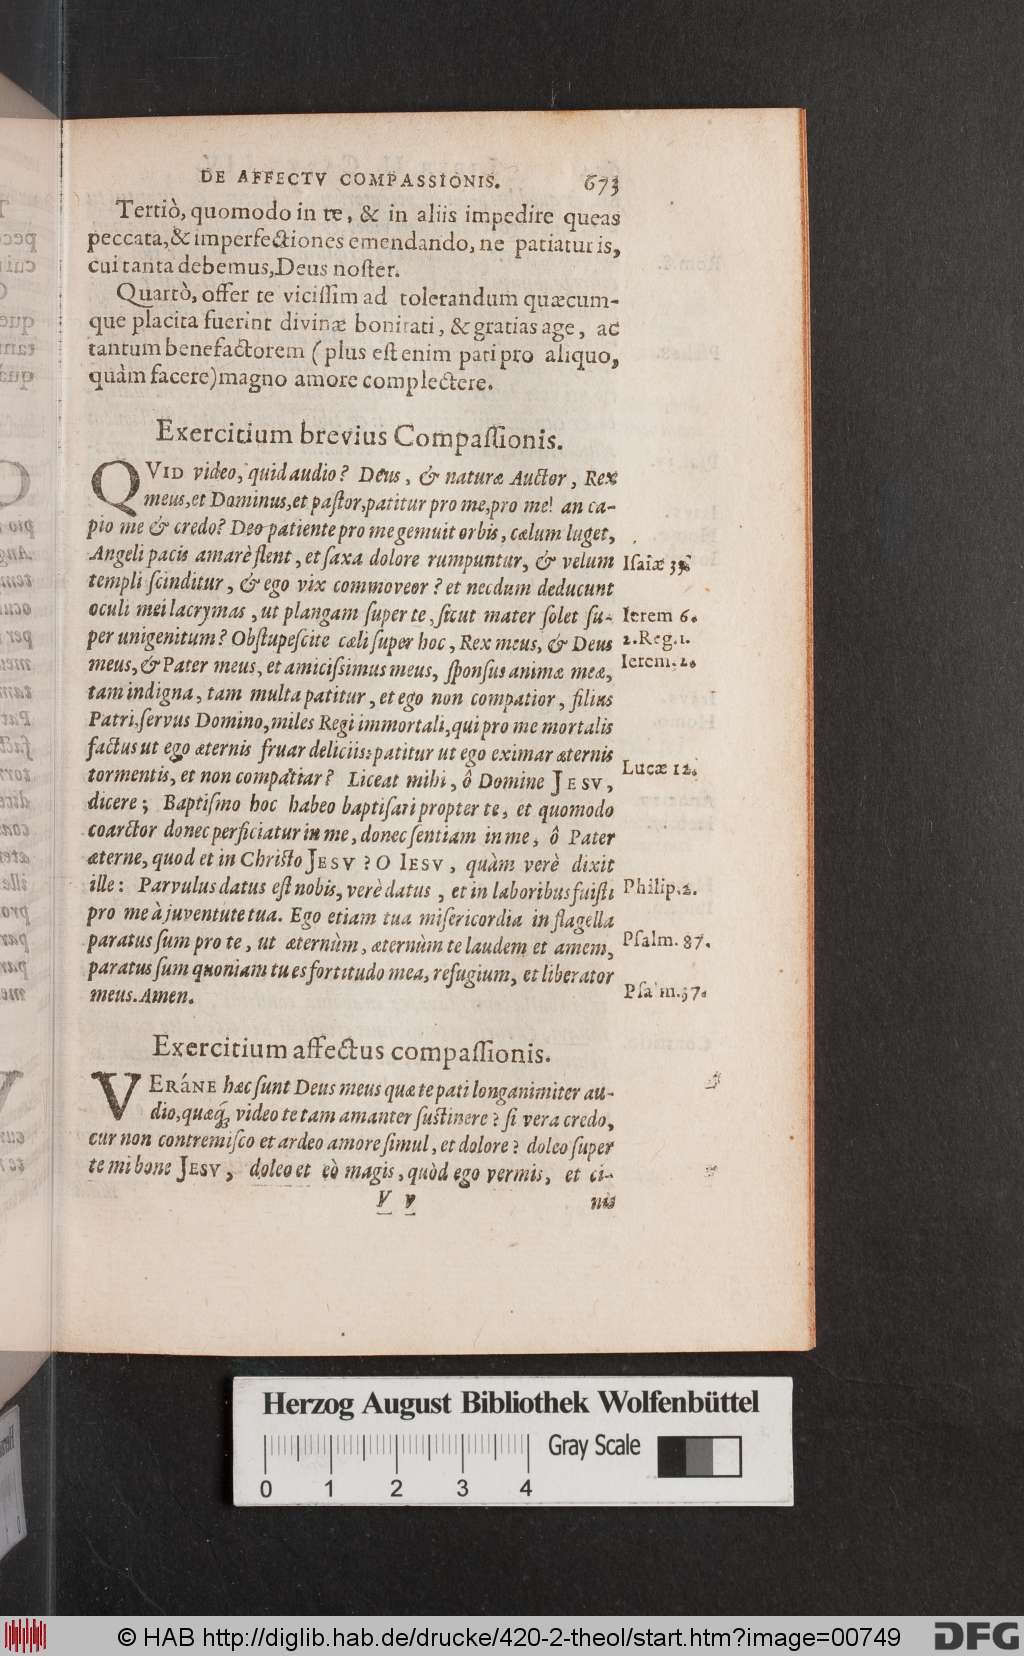 DE AFFECTV COMPASSIONIS. 673
Tertiò, quomodo in te, & in aliis impedire queas
peccata, & imperfectiones emendando, ne patiatur is,
cui tanta debemus, Deus noster.
Quartò, offer te vicissim ad tolerandum quæcum-
que placita fuerint divinæ bonitati, & gratias age, ac
tantum benefactorem (plus est enim pati pro aliquo,
quàm facere) magno amore complectere.
Exercitium brevius Compassionis.
QVID video, quid audio? Deus, & naturæ Auctor, Rex
meus, et Dominus, et pastor, patitur pro me, pro me! an ca-
pio me & credo? Deo patiente pro me gemuit orbis, cælum luget,
Angeli pacis amarè flent, et saxa dolore rumpuntur, & velum
Isaiæ
templi scinditur, & ego vix commoveor? et necdum deducunt
oculi mei lacrymas, ut plangam super te, sicut mater solet su-
Ierem 6.
per unigenitum? Obstupescite cæli super hoc, Rex meus, & Deus
2. Reg. 1.
meus, & Pater meus, et amicissimus meus, sponsus animæ meæ,
Ierem. 2.
tam indigna, tam multa patitur, et ego non compatior, filius
Patri, servus Domino, miles Regi immortali, qui pro me mortalis
factus ut ego æternis fruar deliciis: patitur ut ego eximar æternis
tormentis, et non compatiar? Liceat mihi, ô Domine JESV,
Lucæ 12.
dicere; Baptismo hoc habeo baptisari propter te, et quomodo
coarctor donec perficiatur in me, donec sentiam in me, ô Pater
æterne, quod et in Christo JESV? O IESV, quàm verè dixit
ille: Parvulus datus est nobis, verè datus, et in laboribus fuisti
Philip. 2.
pro me à juventute tua. Ego etiam tua misericordia in flagella
paratus sum pro te, ut æternùm, æternùm te laudem et amem,
Psalm. 87.
paratus sum quoniam tu es fortitudo mea, refugium, et liberator
meus. Amen.
Psalm. 37.
Exercitium affectus compassionis.
VERáNE hæc sunt Deus meus quæ te pati longanimiter au-
dio, quæq́; video te tam amanter sustinere? si vera credo,
cur non contremisco et ardeo amore simul, et dolore? doleo super
te mi bone JESV, doleo et eò magis, quòd ego vermis, et ci-
V v nis
Herzog August Bibliothek Wolfenbüttel
Gray Scale
0 1 2 3 4
© HAB http://diglib.hab.de/drucke/420-2-theol/start.htm?image=00749
DFG